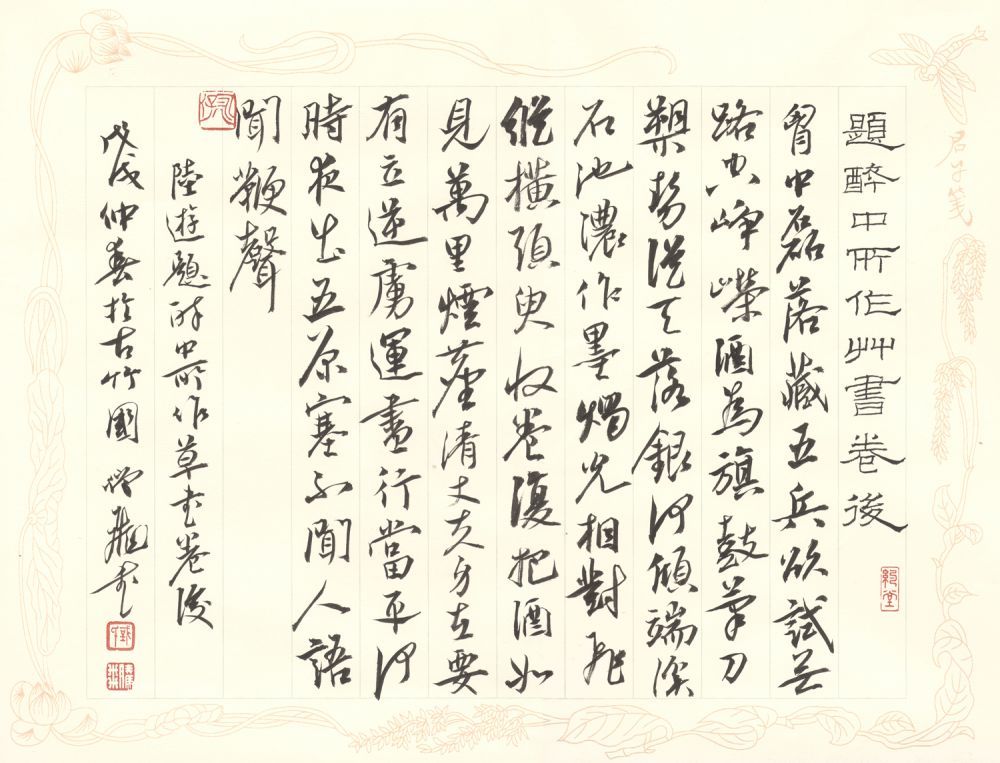 君子箋
題醉中所作艸書卷後
胷中磊落藏五兵欲試無
路空崢嶸酒為旗鼓筆刀
槊勢從天落銀河傾端溪
石池濃作墨燭光相對飛
縱橫須臾收卷復把酒如
見萬里煙塵清丈夫身在要
有立逆虜運盡行當平何
時夜出五原塞不聞人語
聞鞭聲
陸遊題醉中所作草書卷後
戊戌仲春於古竹國